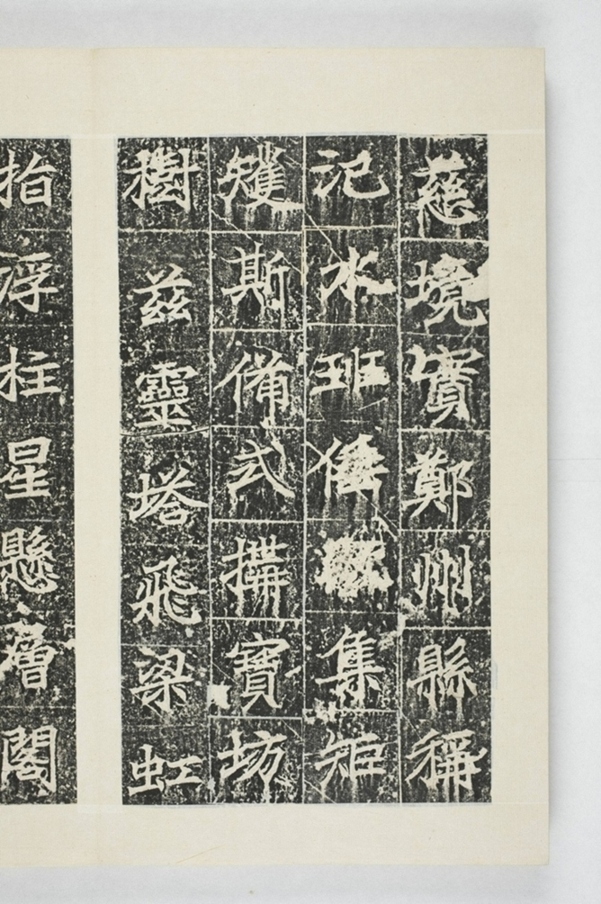 慈境實鄭州縣稱
汜水班倕集矩
矱斯備式搆寶坊
樹茲靈塔飛梁虹
指浮柱星懸層閣